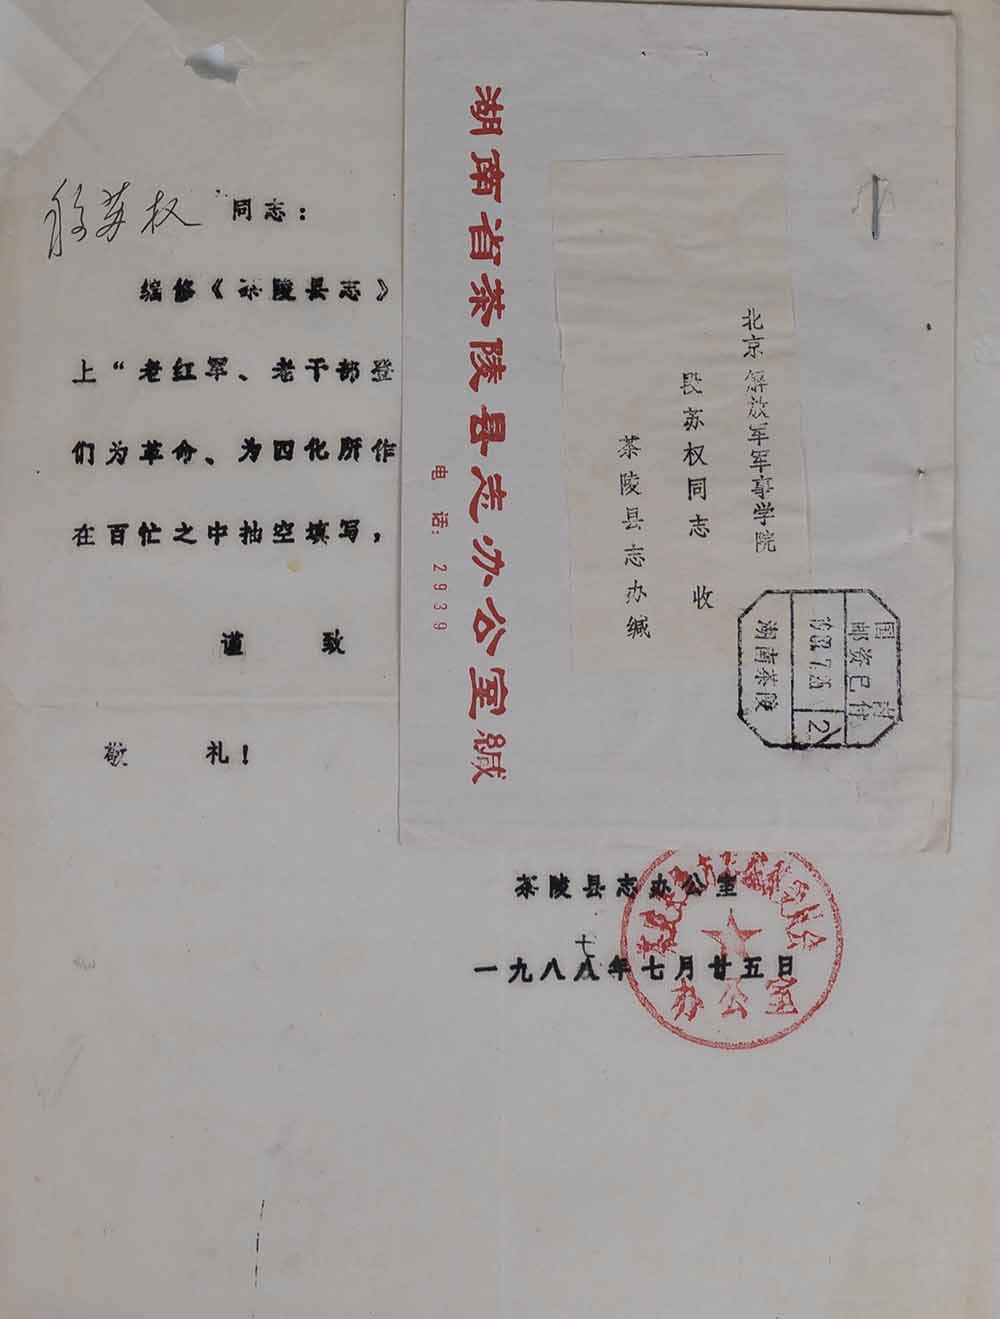 段苏权 同志：
编修《茶陵县志》
上“老红军、老干部登
们为革命、为四化所作
在百忙之中抽空填写，
谨 致
敬 礼！
茶陵县志办公室
七
一九八八年七月廿五日
办公室
湖南省茶陵县志办公室缄
电话：2939
北京解放军军事学院
段苏权同志 收
茶陵县志办缄
国
邮资已付
湖南茶陵
2